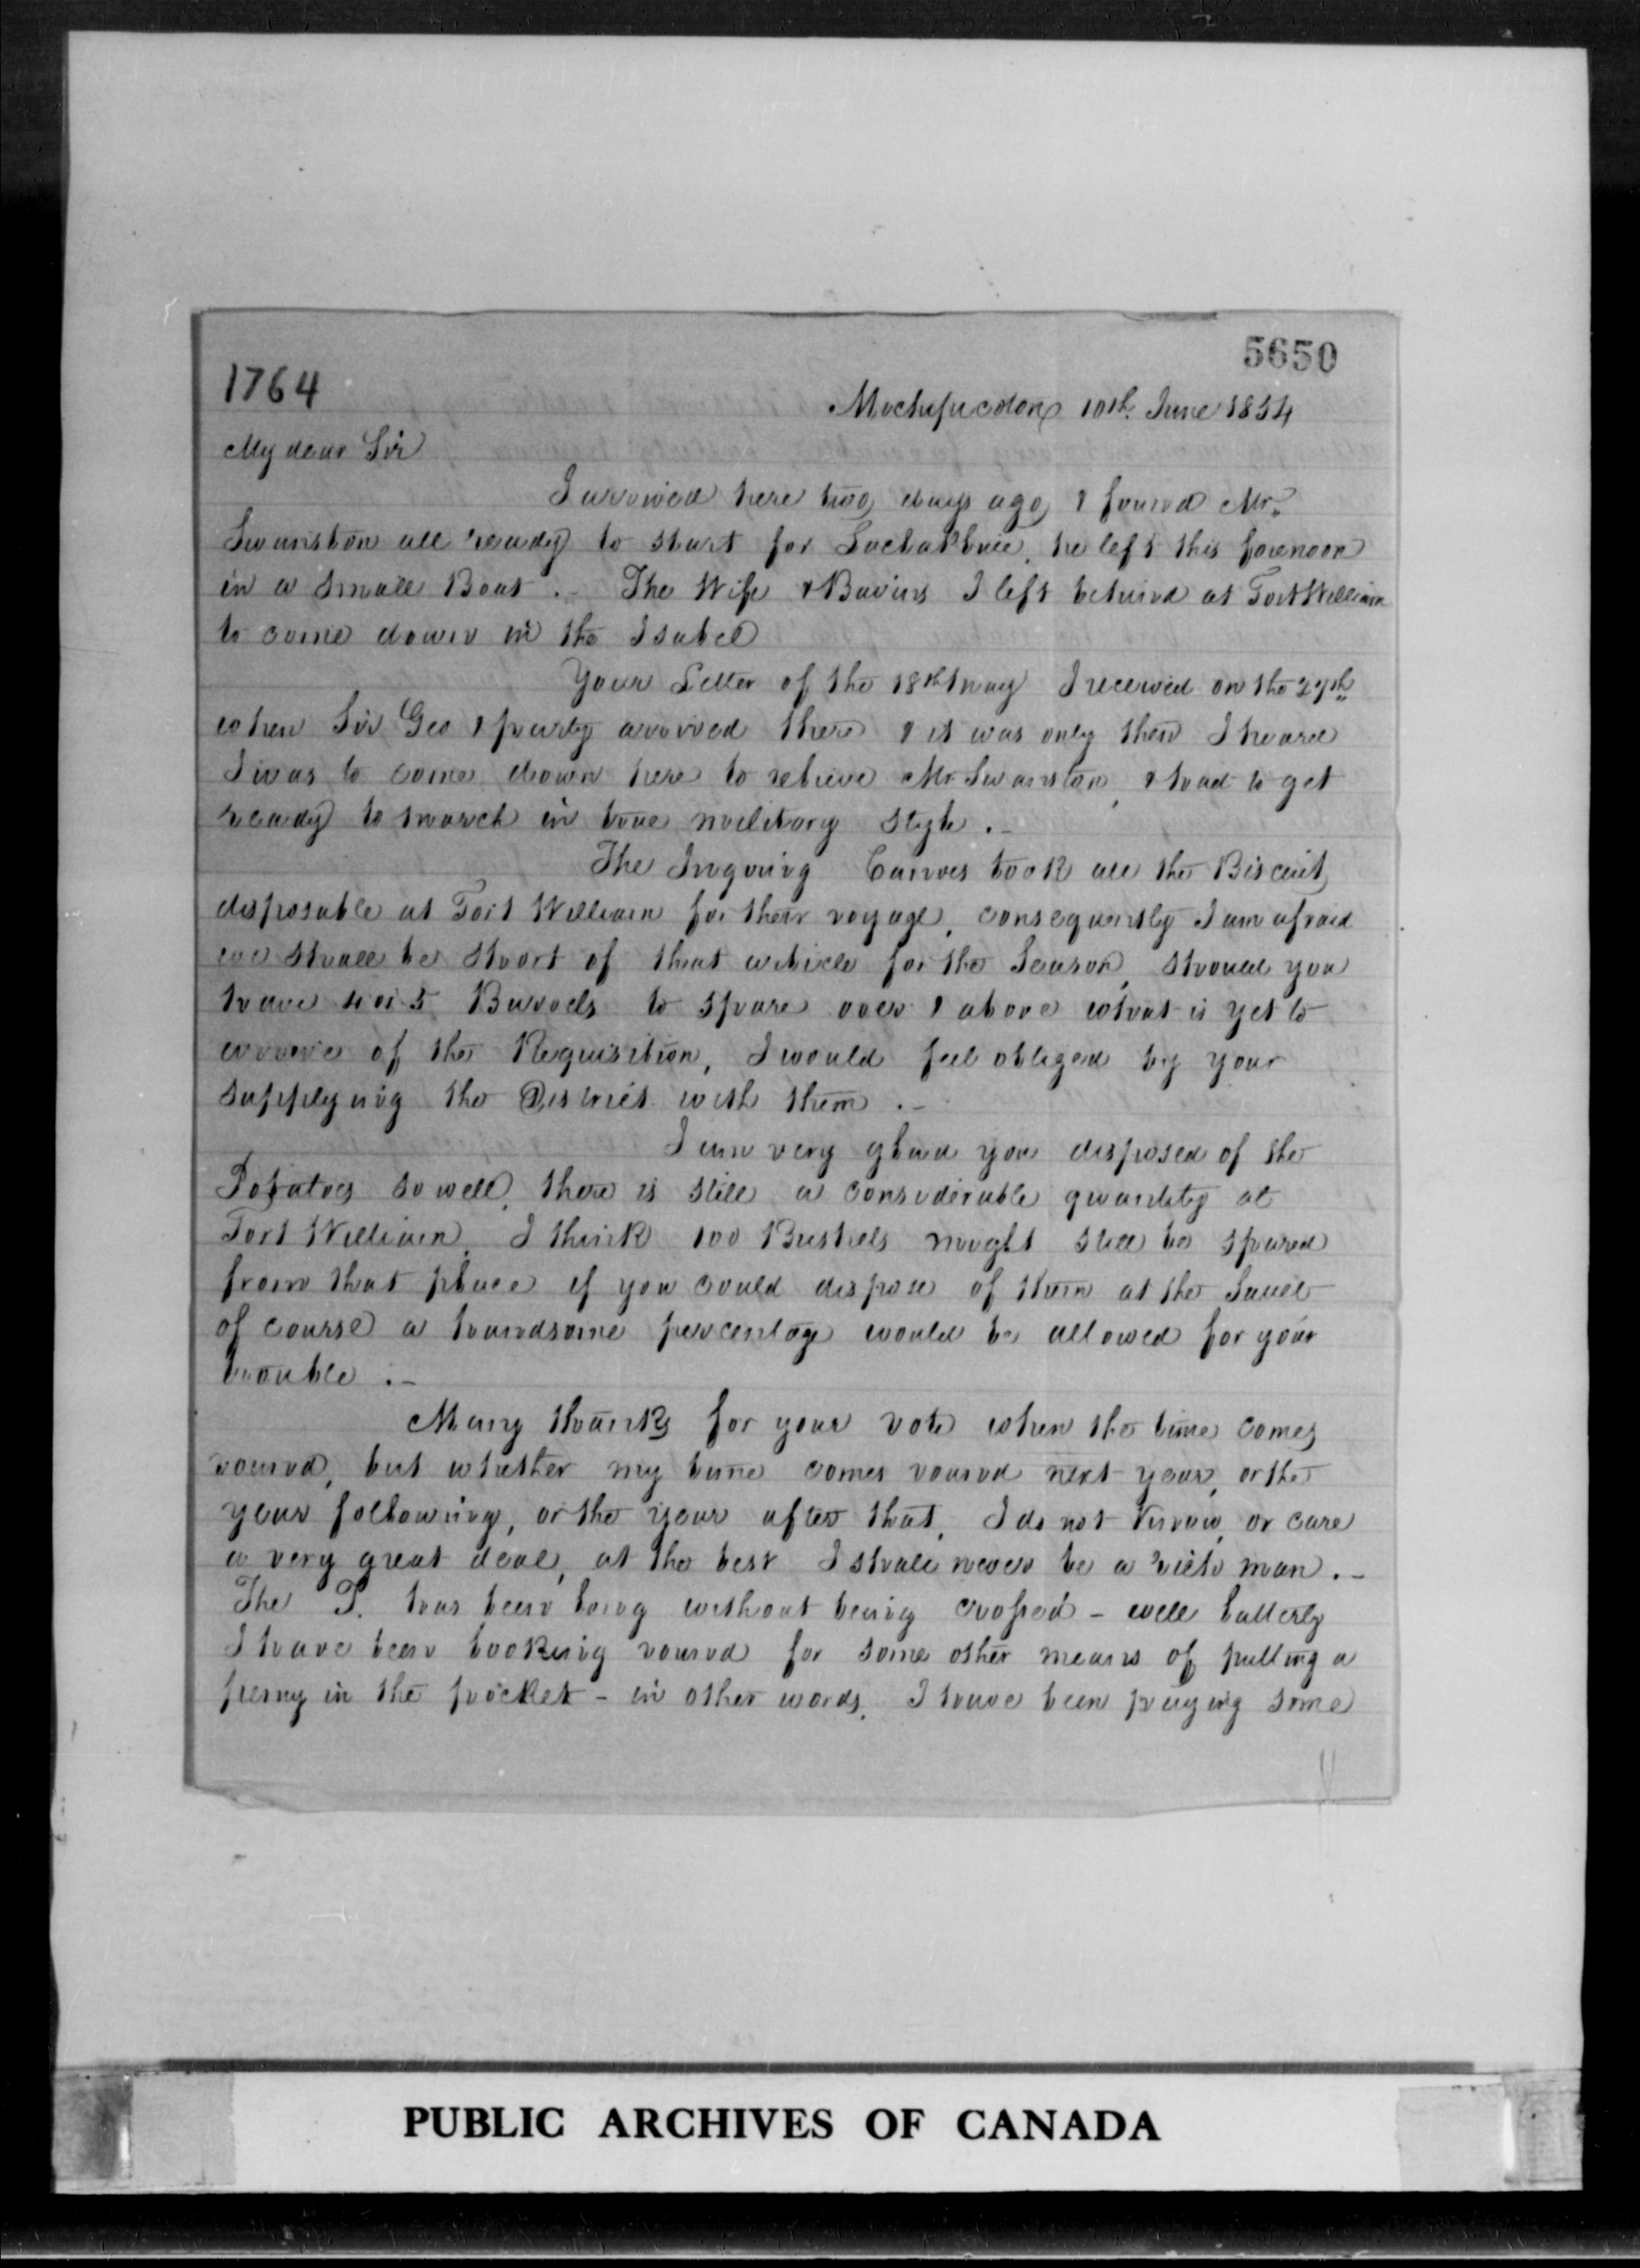 5650
1764
Michipicoton 10th June 1854
My dear Sir
I arrived here two days ago, & found Mr.
Swanston all ready to start for Lac La Pluie, he left this forenoon
in a small Boat .- The Wife & Bairns I left behind at Fort William
to come down in the Isabel
Your Letter of the 18th May I received on the 27th
when Sir Geo & party arrived there & it was only then I heard
I was to come down here to relieve Mr Swanston, & had to get
ready to march in true military style .-
The Ingoing Canoes took all the Biscuit
disposable at Fort William for their voyage, consequently I am afraid
we shall be short of that article for the Season, should you
have 4 or 5 Barrels to spare over & above what is yet to
arrive of the Requisition, I would feel obliged by your
supplying the District with them .-
I am very glad you disposed of the
Potatoes so well, there is still a considerable quantity at
Fort William, I think 100 Bushels might still be spared
from that place if you could dispose of them at the Sault
of course a handsome percentage would be allowed for your
trouble .-
Many thanks for your vote when the time comes
round, but whether my time comes round next year, or the
year following, or the year after that, I do not know, or care
a very great deal, at the best I shall never be a rich man .-
The P. has been long without being crossed - well latterly
I have been looking round for some other means of putting a
penny in the pocket - in other words, I have been paying some
PUBLIC ARCHIVES OF CANADA